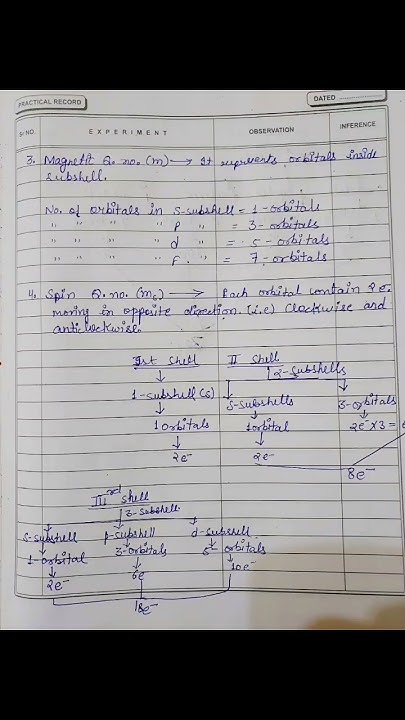 PRACTICAL RECORD
DATED
Sr NO. EXPERIMENT OBSERVATION INFERENCE
3. Magnetic Q. no. (m) → It represents orbitals inside
subshell.
No. of orbitals in S-subshell = 1-orbitals
" " " " P " = 3-orbitals
" " " " d " = 5-orbitals
" " " " F. " = 7-orbitals
4. Spin Q. no. (ms) → Each orbital contain 2e
moving in opposite direction. (i.e) Clockwise and
anticlockwise.
Ist Shell II Shell
2-subshells
1-subshell (s) S-subshells 3-orbitals
1 orbitals 1 orbital 2e⁻ x 3 =
2e⁻ 2e⁻
8e⁻
III rd shell
3-subshells
S-subshell P-subshell d-subshell
1-orbital 3-orbitals 5-orbitals
2e⁻ 6e 10e⁻
18e⁻